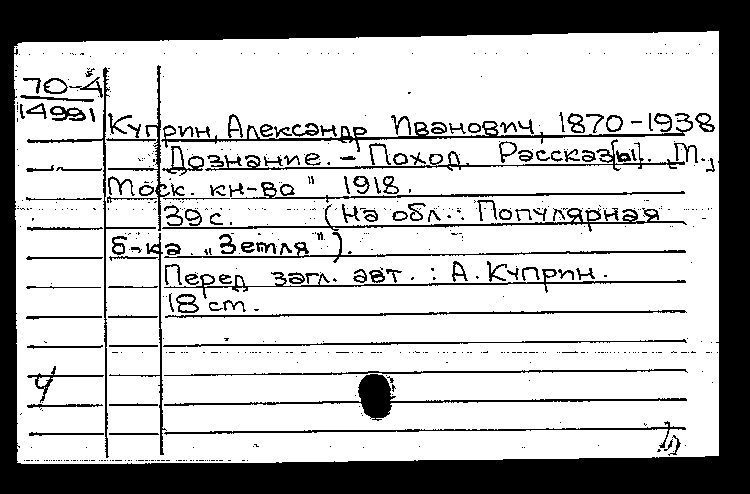 70-4
14991
Куприн, Александр Иванович, 1870-1938
Дознание. - Поход. Рассказ[ы]. М.,
"Моск. кн-во", 1918.
39 с. (На обл.: Популярная
б-ка „Земля").
Перед загл. авт.: А. Куприн.
18 ст.